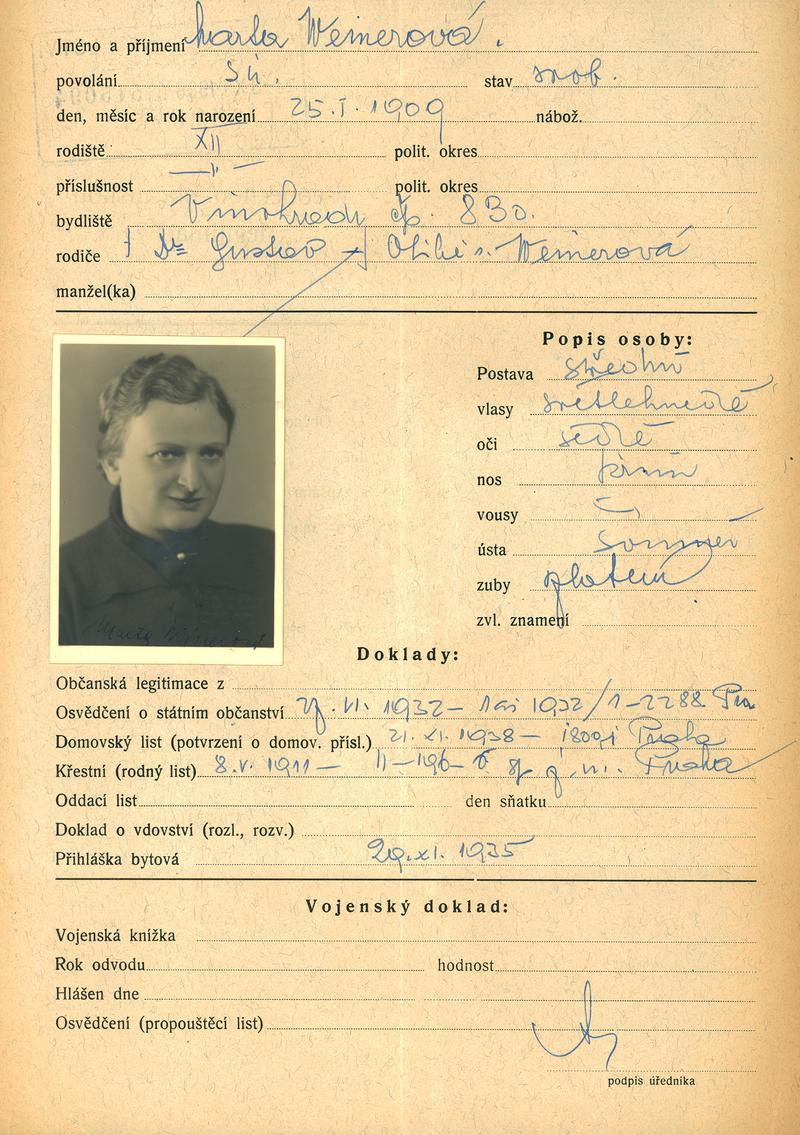 Jméno a příjmení Marta Weinerová.
povolání stav svob.
den, měsíc a rok narození 25.I.1909 nábož.
rodiště XII polit. okres
příslušnost —"— polit. okres
bydliště Vinohrady čp. 830.
rodiče † Dr Gustav † Otilie r. Weinerová
manžel(ka)
Popis osoby:
Postava střední
vlasy světlehnědé
oči šedé
nos přímý
vousy
ústa souměr
zuby
zvl. znamení
Marta Weinerová
Doklady:
Občanská legitimace z
Osvědčení o státním občanství 1932 — 1932/1-2288
Domovský list (potvrzení o domov. přísl.) 21.XI.1938 — Praha
Křestní (rodný list) 8.V.1911 — II-196- Praha
Oddací list den sňatku
Doklad o vdovství (rozl., rozv.)
Přihláška bytová 29.XI.1935
Vojenský doklad:
Vojenská knížka
Rok odvodu hodnost
Hlášen dne
Osvědčení (propouštěcí list)
podpis úředníka